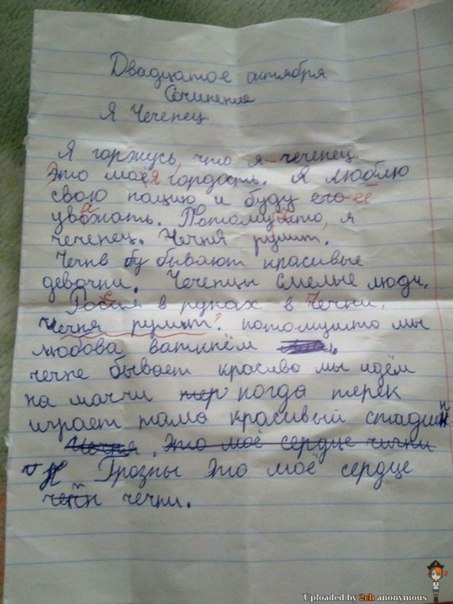 Двадцатое октября
Сочинение
Я Чеченец
Я горжусь, что я - чеченец.
Это моея гордость. Я люблю
свою нацию и буду его ее
уважать. Потомушто, я
чеченец. Чечня румит,
Чечне бу бывают красивые
девочки. Чеченцы смелые люди.
Россия в руках в Чечни.
Чечня румит? потомушто мы
любова ваткнём
чечне бывает красиво мы идём
на матчи тер когда терек
играет тама красивый стадион
Чечня. Это моё сердце чични
Н Грозны Это моё сердце
чечн чечни.
Uploaded by 2ch anonymous